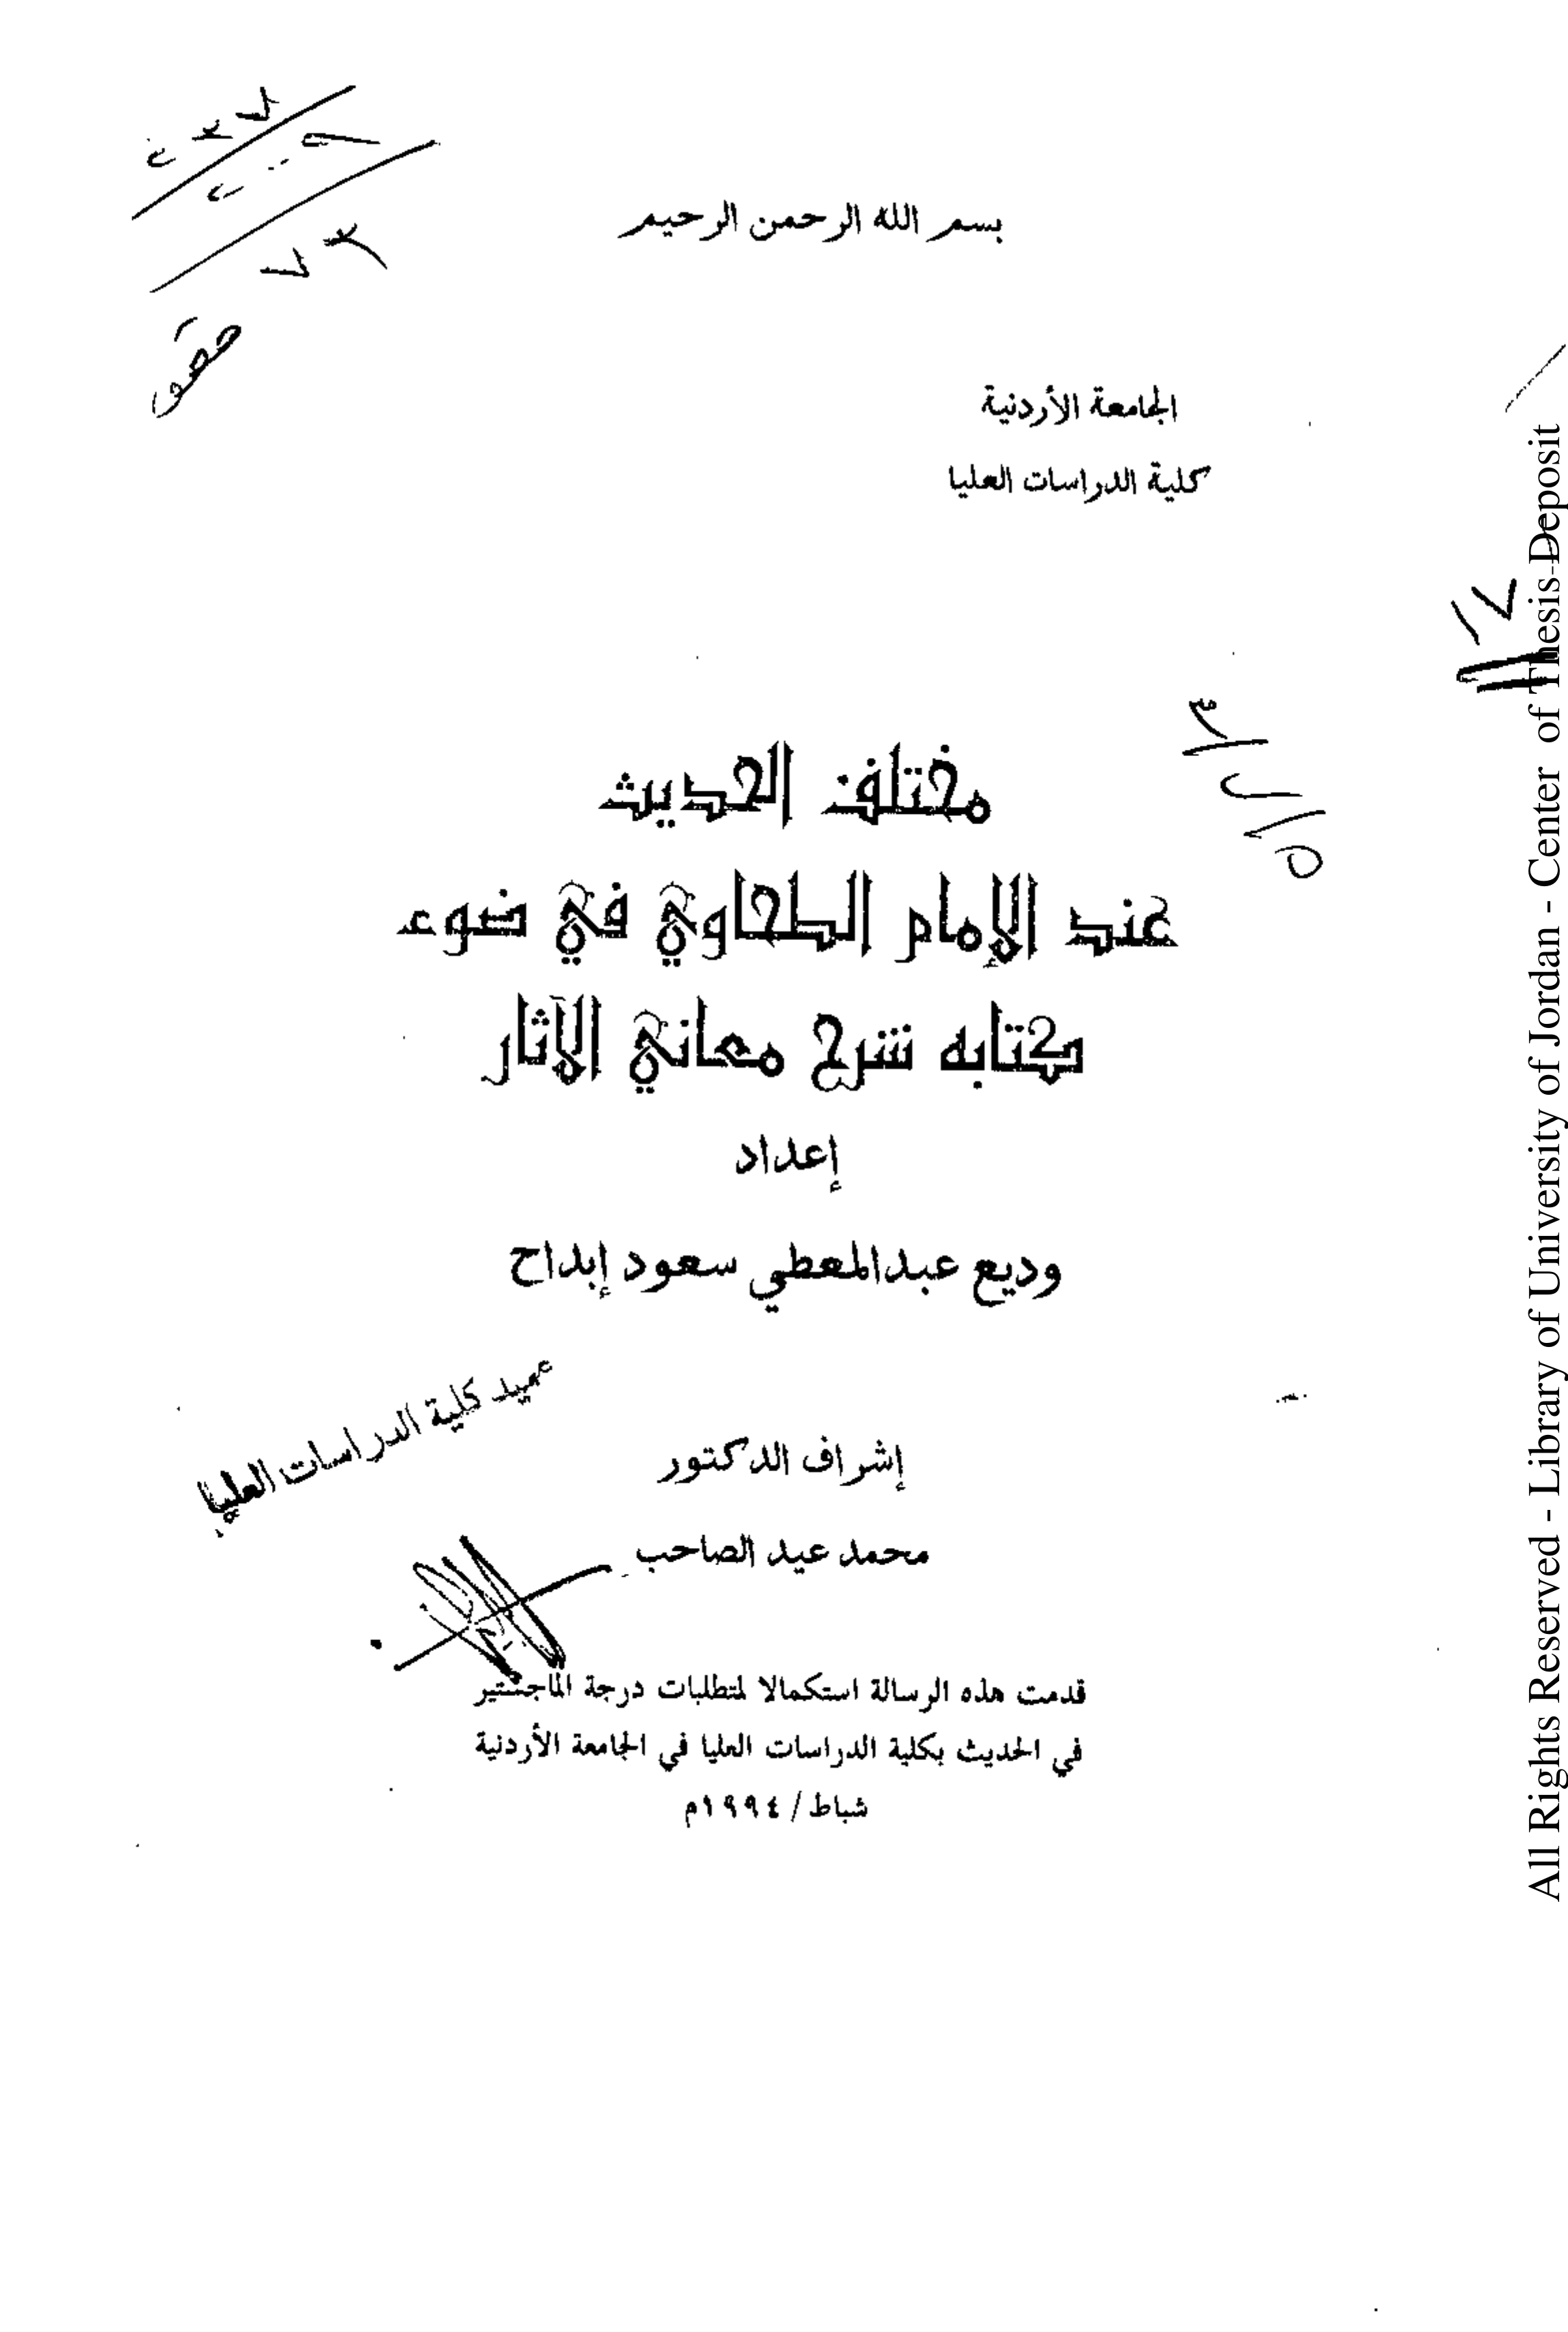 بسم الله الرحمن الرحيم
الجامعة الأردنية
كلية الدراسات العليا
مختلف الحديث
عند الإمام الطحاوي في ضوء
كتابه شرح معاني الآثار
إعداد
وديع عبدالمعطي سعود إبداح
عميد كلية الدراسات العليا
إشراف الدكتور
محمد عيد الصاحب
قدمت هذه الرسالة استكمالا لمتطلبات درجة الماجستير
في الحديث بكلية الدراسات العليا في الجامعة الأردنية
شباط / ١٩٩٤م
All Rights Reserved - Library of University of Jordan - Center of Thesis Deposit